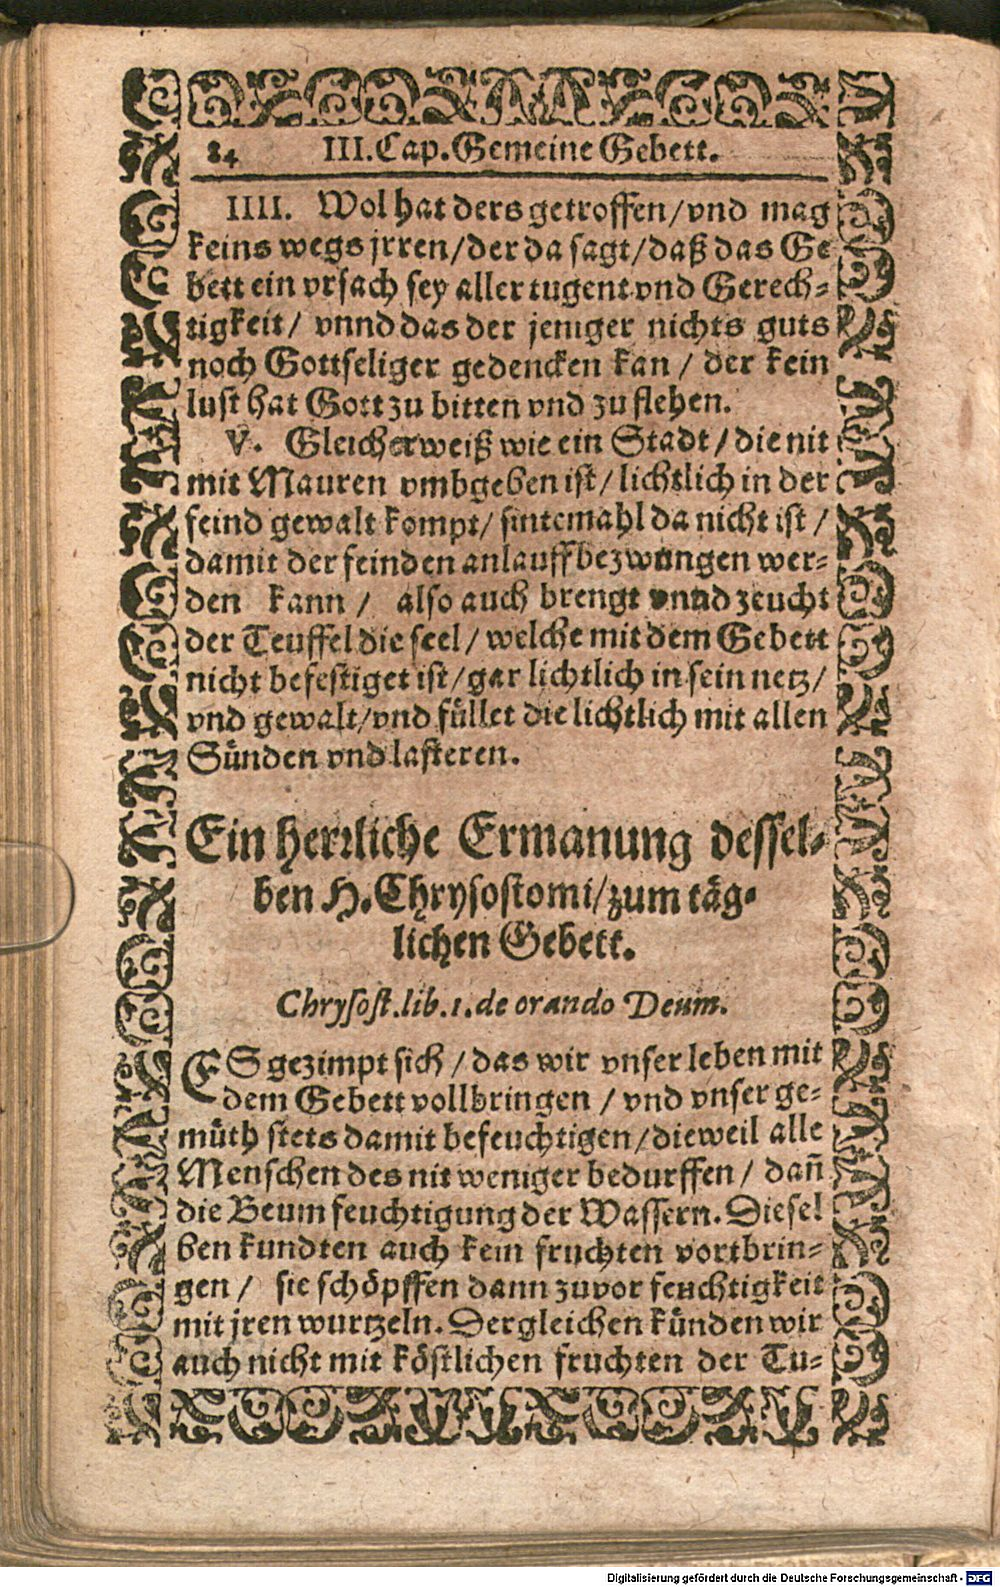 84 III. Cap. Gemeine Gebett.
IIII. Wol hat ders getroffen/vnd mag
keins wegs jrren/der da sagt/daß das Ge
bett ein vrsach sey aller tugent vnd Gerech-
tigkeit/ vnnd das der jeniger nichts guts
noch Gottseliger gedencken kan / der kein
lust hat Gott zu bitten vnd zu flehen.
V. Gleicherweiß wie ein Stadt / die nit
mit Mauren vmbgeben ist / lichtlich in der
feind gewalt kompt/ sintemahl da nicht ist /
damit der feinden anlauff bezwungen wer-
den kann / also auch brengt vnnd zeucht
der Teuffel die seel / welche mit dem Gebett
nicht befestiget ist / gar lichtlich in sein netz/
vnd gewalt/vnd füllet die lichtlich mit allen
Sünden vnd lasteren.
Ein herrliche Ermanung dessel-
ben H. Chrysostomi/zum täg-
lichen Gebett.
Chrysost. lib. 1. de orando Deum.
ES gezimpt sich / das wir vnser leben mit
dem Gebett vollbringen / vnd vnser ge-
müth stets damit befeuchtigen/dieweil alle
Menschen des nit weniger bedurffen / dañ
die Beum feuchtigung der Wassern. Diesel
ben kundten auch kein fruchten vortbrin-
gen / sie schöpffen dann zuvor feuchtigkeit
mit jren wurtzeln. Dergleichen künden wir
auch nicht mit köstlichen fruchten der Tu-
Digitalisierung gefördert durch die Deutsche Forschungsgemeinschaft - DFG